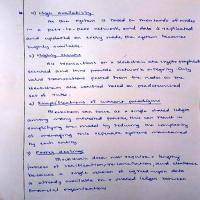 4) High Availability
As this system is based on thousands of nodes
in a peer-to-peer network, and data is replicated
and updated on every node, the system becomes
highly available.
5) Highly secure
All transactions on a blockchain are cryptographically
secured and thus provide network integrity. Only
valid transactions posted from the nodes on the
blockchain are verified based on predetermined
set of rules.
6) Simplification of current paradigms
Blockchain can serve as a single shared ledger
among many interested parties, this can result in
simplifying the model by reducing the complexity
of managing the separate systems maintained
by each entity.
7) Faster dealings
Blockchain does not require a lengthy
process of verification, reconciliation, and clearance
because a single version of agreed-upon data
is already available on a shared ledger between
financial organizations.